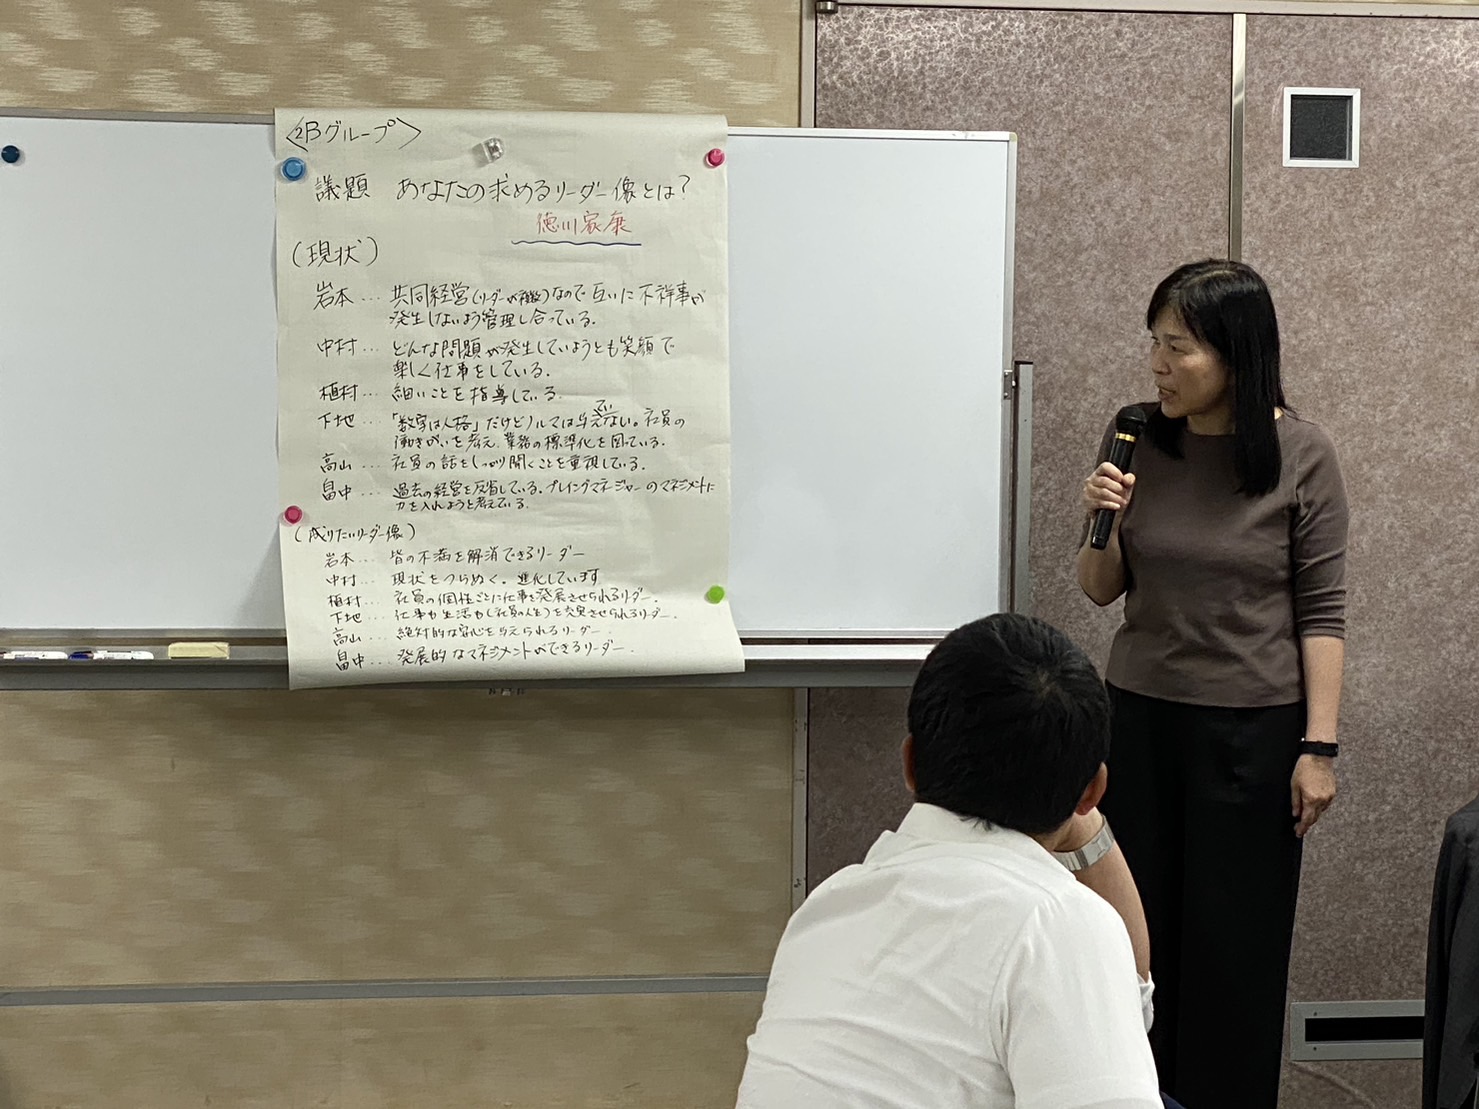 〈2Bグループ〉
議題 あなたの求めるリーダー像とは?
徳川家康
(現状)
岩本… 共同経営(リーダーが複数)なので互いに不祥事が
発生しないよう管理し合っている。
中村… どんな問題が発生していようとも笑顔で
楽しく仕事をしている。
植村… 細いことを指導している。
下地… 「数字は人格」だけどノルマは与えてない。社員の
働きがいを考え、業務の標準化を図っている。
高山… 社員の話をしっかり聞くことを重視している。
畠中… 過去の経営を反省している。プレイングマネジャーのマネジメントに
力を入れようと考えている。
(成りたいリーダー像)
岩本… 皆の不満を解消できるリーダー
中村… 現状をつらぬく。進化しています
植村… 社員の個性ごとに仕事を発展させられるリーダー。
下地… 仕事も生活も(社員の人生)を充実させられるリーダー。
高山… 絶対的な安心を与えられるリーダー
畠中… 発展的なマネジメントができるリーダー。